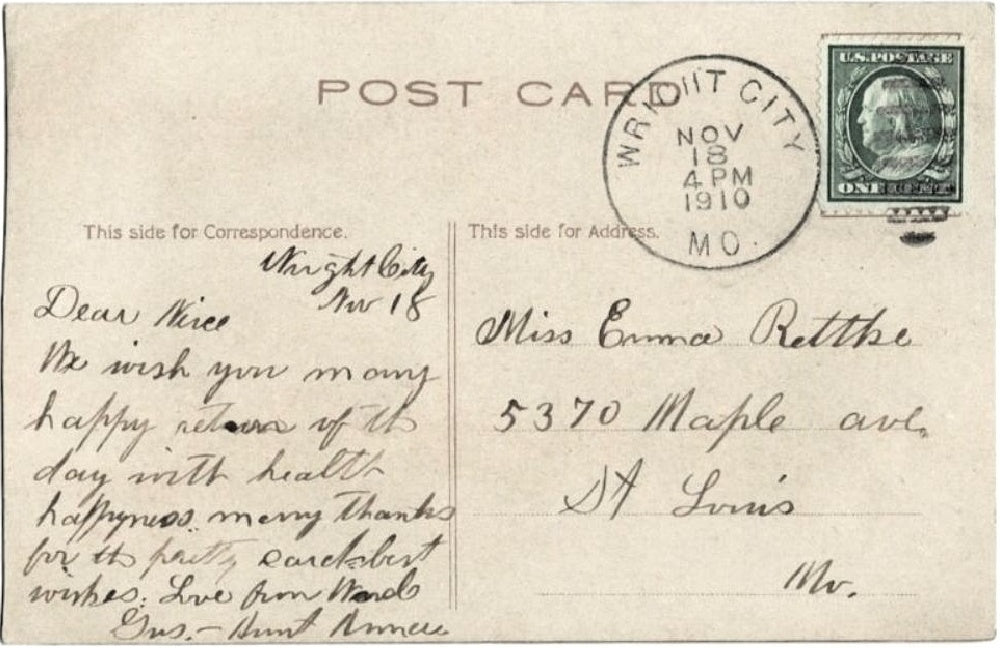 POST CARD
WRIGHT CITY
NOV
18
4 PM
1910
MO.
U.S. POSTAGE
ONE
This side for Correspondence.
Wright City
Nov 18
Dear Niece
We wish you many
happy return of th
day with health
happyness. merry thanks
for th pretty card best
wishes. Love from
Gus. - Aunt
This side for Address.
Miss Emma Rettke
5370 Maple ave.
St Louis
Mo.